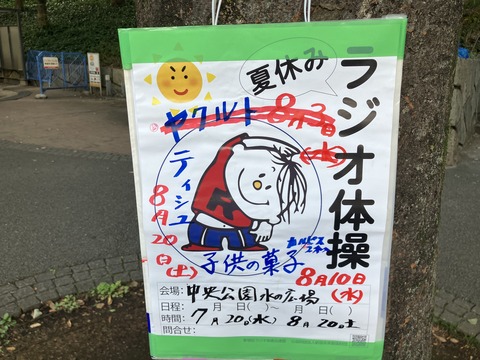 夏休み
ラジオ体操
ヤクルト 8月3日
(水)
ティシュ
8月20日(土)
R
カルピス
子供の菓子
8月10日
(水)
会場: 中央公園水の広場
日程: 月 日( )〜 月 日( )
時間: 7月20日(水) 8月20日土
問合せ: